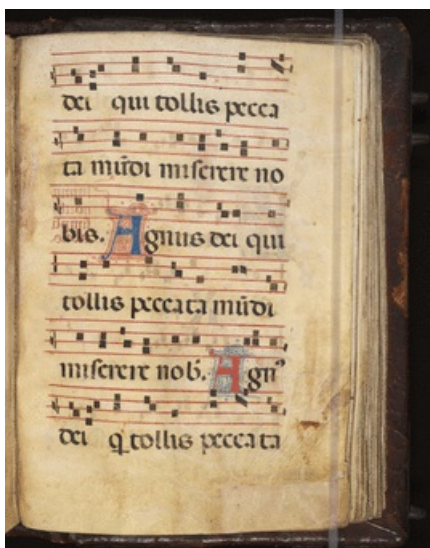 dei qui tollis pecca
ta mūdi miserere no
bis. Agnus dei qui
tollis peccata mūdi
miserere nob̄. Agn⁹
dei q̄ tollis peccata